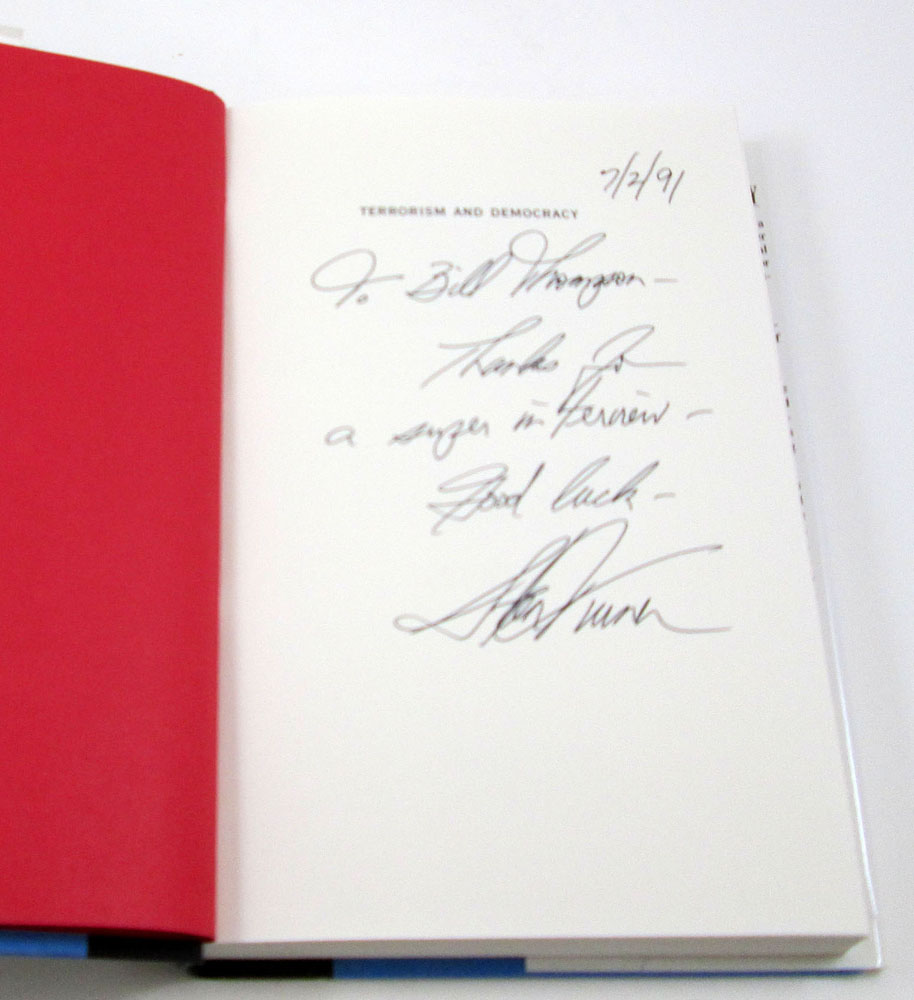 7/2/91
TERRORISM AND DEMOCRACY
To Bill Thompson—
Thanks for
a super interview—
Good luck—
Stan Turner